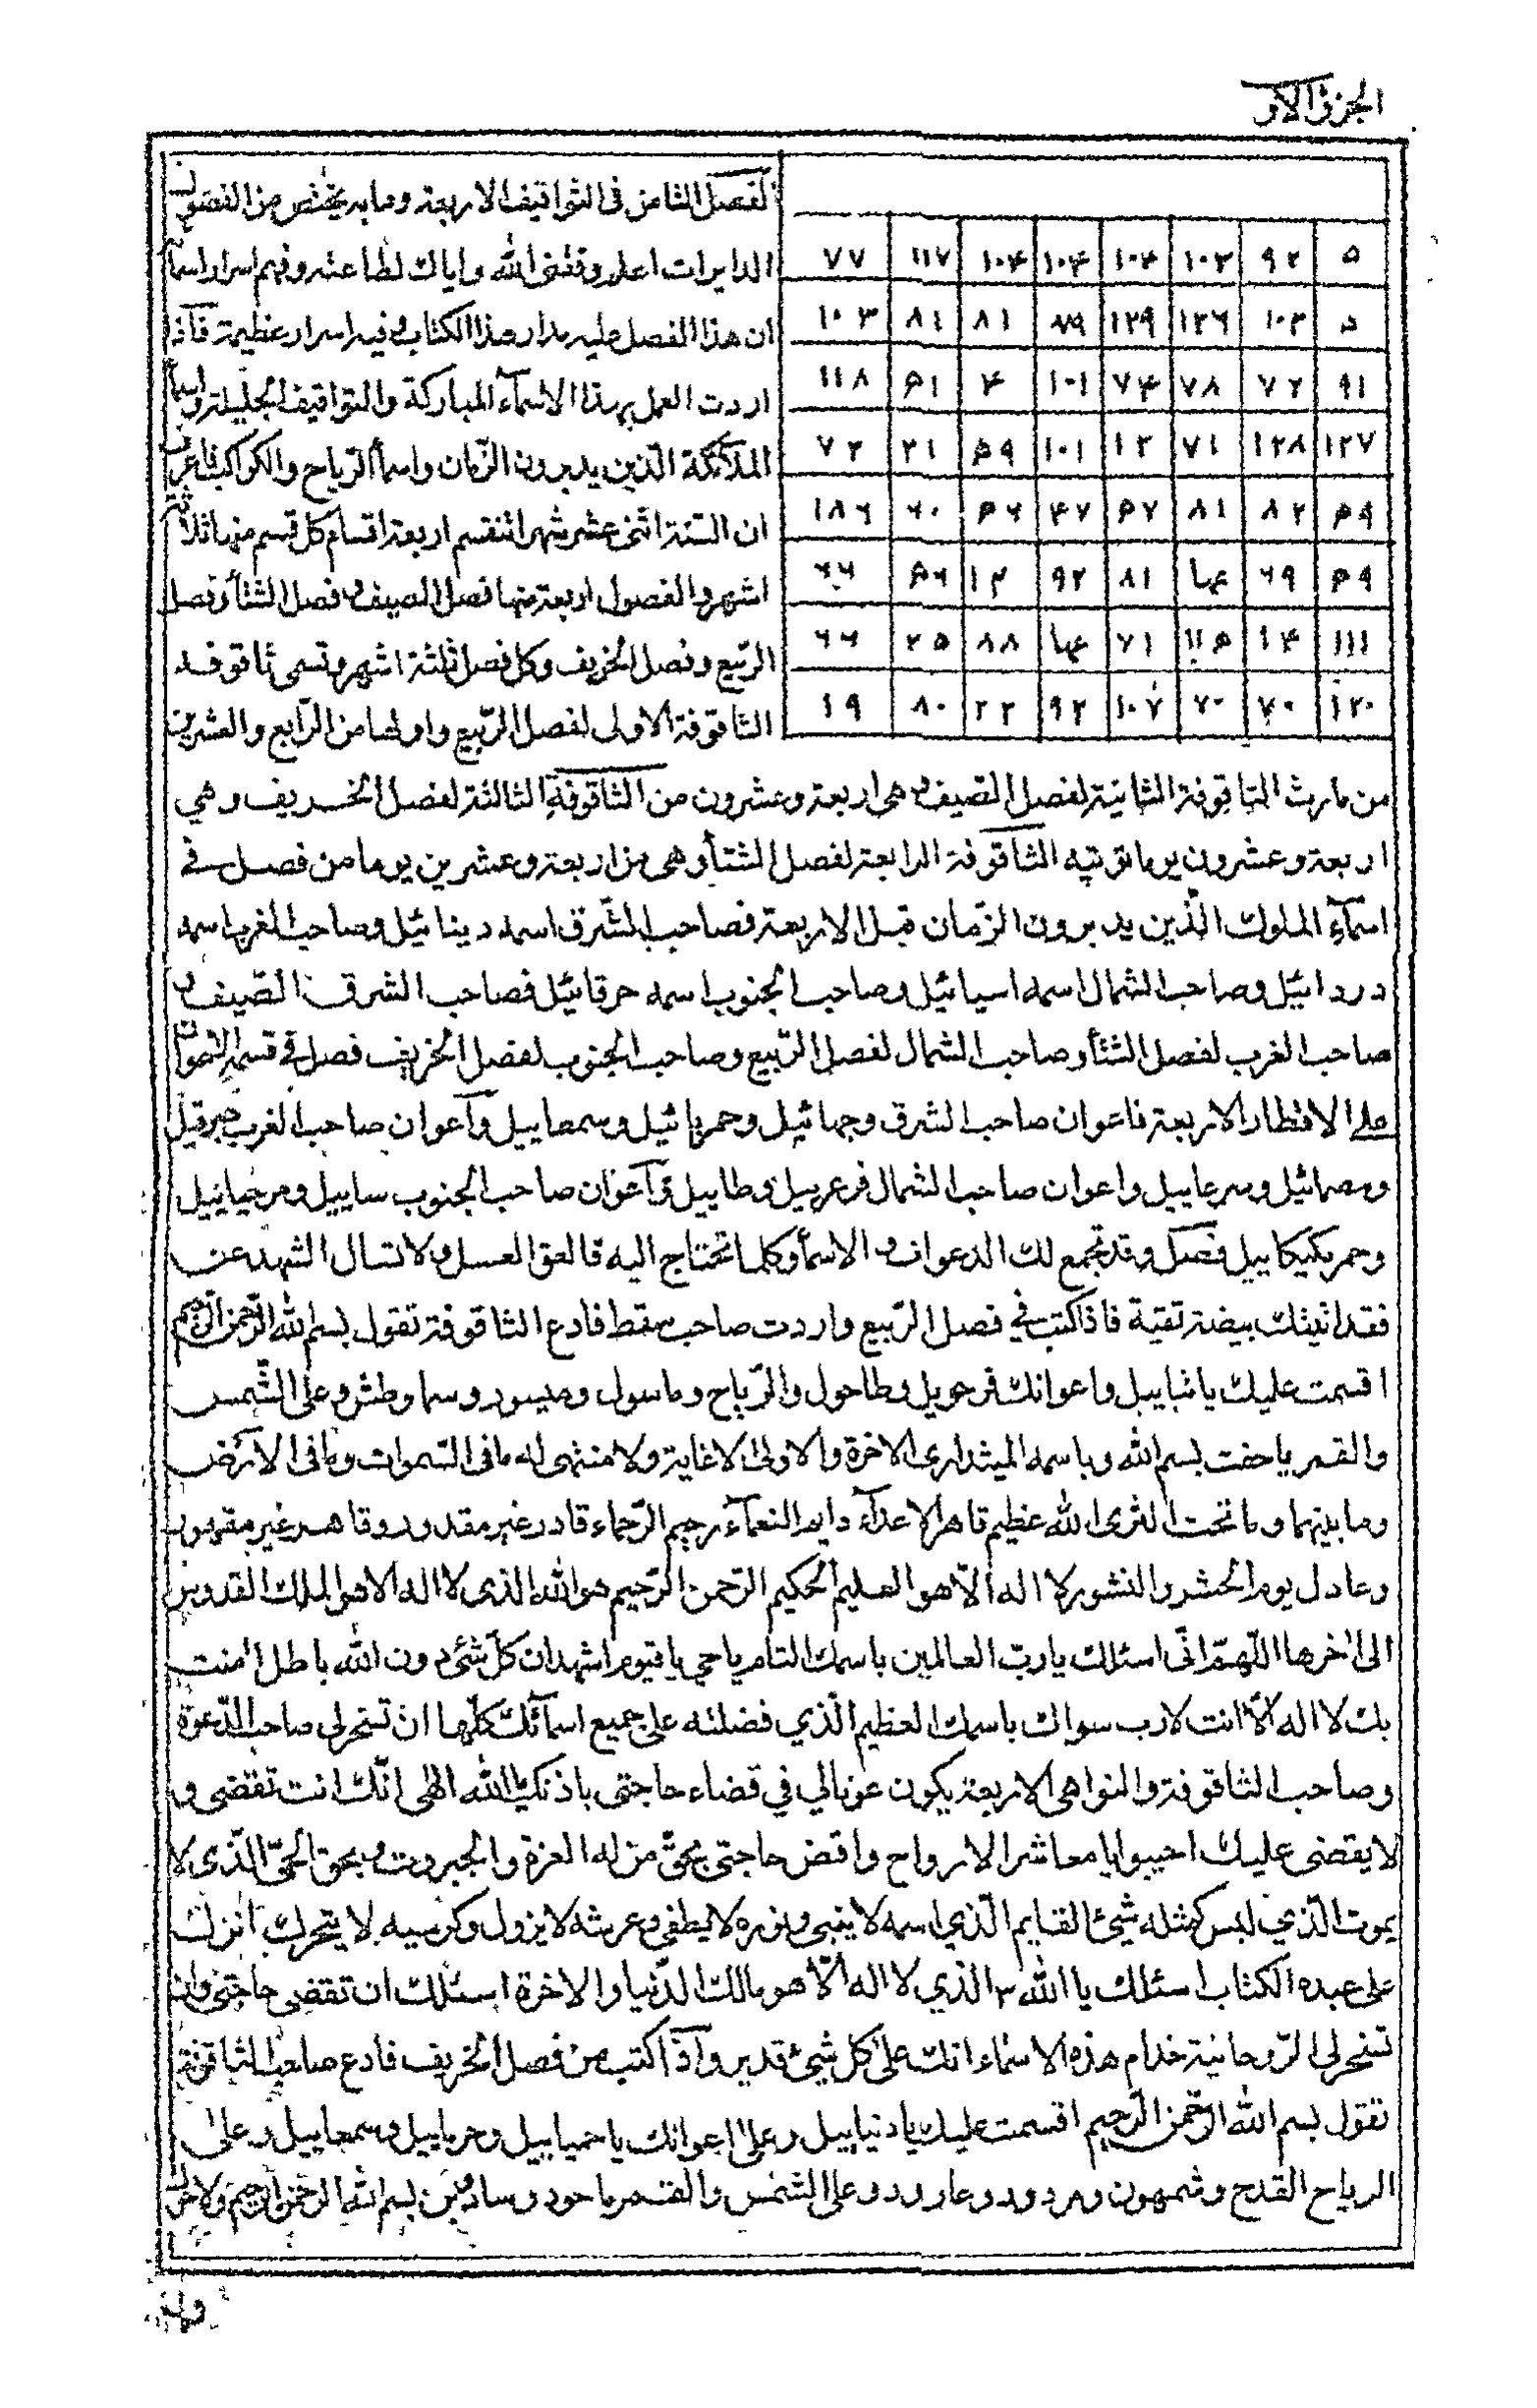 الجزء الاول
الفصل الثامن فى التواقيف الاربعة وما به يختص من الفصول
الدايرات اعلم وفقنى الله واياك لطاعته وفهم اسرار اسمآ
ان هذا الفصل عليه مدار هذا الكتاب وفيه اسرار عظيمة فآذا
اردت العمل بهذا الاسمآء المباركة والتواقيف الجليلة واسمآ
الملآئكة الّذين يدبرون الزّمان واسمآ الرّياح والكواكب فاعرف
ان السّنة اثنى عشر شهرا تنقسم اربعة اقسام كل قسم منها ثلاثة
اشهر والفصول اربعة منها فصل الصيف وفصل الشتآ وفصل
الرّبيع وفصل الخريف وكل فصل ثلثة اشهر وتسمى ثاقوفة
الثاقوفة الاولى لفصل الرّبيع واولها من الرّابع والعشرين
۵ ۹۲ ۱۰۳ ۱۰۴ ۱۰۴ ۱۰۴ ۱۱۷ ۷۷
۵ ۱۰۳ ۱۲۶ ۱۲۹ ۸۹ ۸۱ ۸۱ ۱۰۳
۹۱ ۷۲ ۷۸ ۷۴ ۱۰۱ ۴ ۵۱ ۱۱۸
۱۲۷ ۱۲۸ ۷۱ ۱۲ ۱۰۱ ۵۹ ۲۱ ۷۲
۵۹ ۸۲ ۸۱ ۵۷ ۴۷ ۵۶ ۶۰ ۱۸۶
۵۹ ۶۹ ۸۱ ۹۲ ۱۲ ۵۶ ۶۶
۱۱۱ ۱۴ ۷۱ ۸۸ ۲۵ ۶۶
۱۲۰ ۷۰ ۷۰ ۱۰۷ ۹۲ ۲۲ ۸۰ ۱۹
من مارث الثاقوفة الثانية لفصل الصّيف وهى اربعة وعشرون من الثاقوفة الثالثة لفصل الخريف وهي
اربعة وعشرون يوما الثاقوفة الرابعة لفصل الشتآ وهى من اربعة وعشرين يوما من فصل في
اسمآء الملوك الّذين يدبرون الزّمان قبل الاربعة فصاحب الشّرق اسمه دينائيل وصاحب الغرب اسمه
دردائيل وصاحب الشمال اسمه اسيائيل وصاحب الجنوب اسمه حرقائيل فصاحب الشرق الصّيف و
صاحب الغرب لفصل الشتآ وصاحب الشمال لفصل الرّبيع وصاحب الجنوب لفصل الخريف فصل في قسمة الاعوان
على الاقطار الاربعة فاعوان صاحب الشرق وجهائيل وحمريائيل وسمعاييل وآعوان صاحب الغرب
ومصمائيل وسرعاييل واعوان صاحب الشمال فرعرييل وطاييل وآعوان صاحب الجنوب ساييل
وحمريكيكاييل فصل وقد تجمع لك الدعوات و الاسمآ وكلما تحتاج اليه فالعق العسل ولا تسال الشهد عن
فقد بيضة نقية فاذا كتبت في فصل الرّبيع واردت صاحب سقط فادع الثاقوفة تقول بسم الله الرّحمن الرّحيم
اقسمت عليك يا شاييل واعوانك فرحويل وطاحول والرّياح وماسول وميسور وسما وطش وعلى الشّمس
والقمر ياحفت بسم الله وباسمه الاخرة والاولى لاغاية ولا منتهى له ما فى السّموات وما فى الارض
وما بينهما وما تحت الثرى الله عظيم قاهر الاعدآء دايم النعمآء رحيم الرّحماء قادر غير مقدور وقاهر غير مقهور
وعادل يوم الحشر والنشور لا اله الّا هو العليم الحكيم الرّحمن الرّحيم هو الله الذى لا اله الا هو الملك القدوس
الى اٰخرها اللّهمّ انّى اسئلك يا ربّ العالمين باسمك التام يا حي يا قيوم اشهد ان كلّ شئ دون الله باطل اٰمنت
بك لا اله الّا انت لا رب سواك باسمك العظيم الّذي فضلته على جميع اسمآئك كلّها ان تسخر لى صاحب الدّعوة
وصاحب الثاقوفة والنواهى الاربعة يكون عونا لي في قضاء حاجتى باذنك يا الله الهى انّك انت تقضى و
لا يقضى عليك اجيبوا يا معاشر الارواح واقض حاجتى بحقّ من له العزة والجبروت وبحق الحيّ الّذى لا
يموت الّذي ليس كمثله شيئ القايم الّذي اسمه لا ينسى ونوره لا يطفى وعرشه لا يزول وكرسيه لا يتحرك انزلت
على عبده الكتاب اسئلك يا الله ٣ الذي لا اله الّا هو مالك الدّنيا والاخرة اسئلك ان تقضى حاجتى وان
تسخر لى الرّوحانية خدام هذه الاسماء انك على كل شيئ قدير وآذا كتبت من فصل الخريف فادع صاحب الثاقوفة
تقول بسم الله الرّحمن الرّحيم اقسمت عليك يا دنياييل وعلى اعوانك يا حمياييل وحرياييل وسمعاييل وعلى
الرياح القدح وشمهون ومردود وعارود وعلى الشمس والقمر ماحود بسم الله الرحمن الرحيم ولا حول